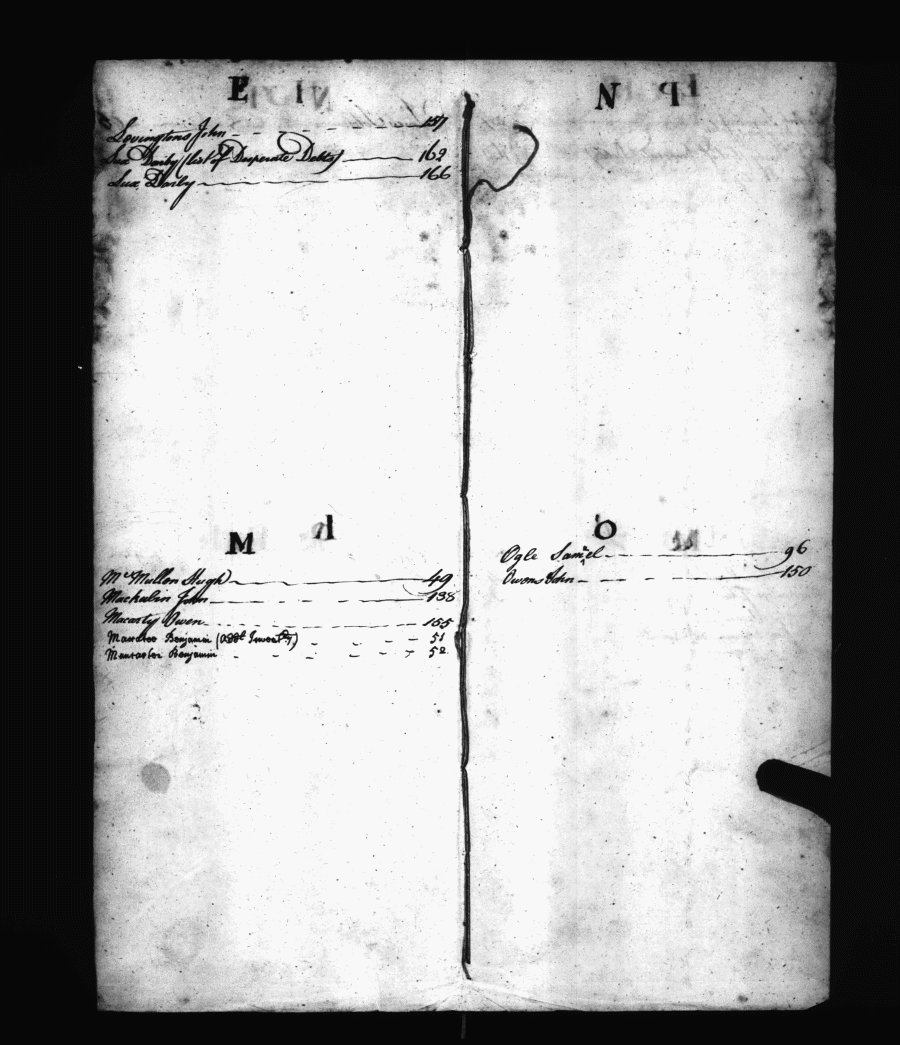 L
Lovington John 157
Lux Darby (list of Desperate Debts) 162
Lux, Darby 166
M
McMullen Hugh 49
Mackubin John 138
Macarty Owen 155
Benjamin (Addl Inventy) 51
Benjamin 52
N
O
Ogle Saml 96
Owens John 150